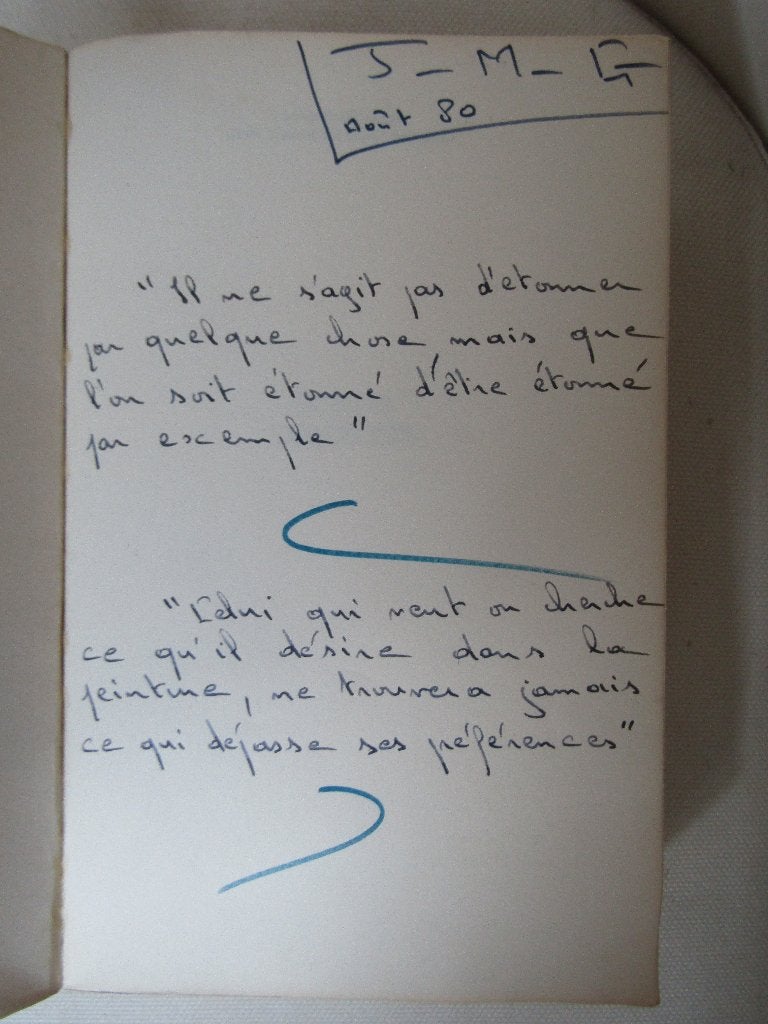 J-M-G
Août 80
"Il ne s'agit pas d'étonner
par quelque chose mais que
l'on soit étonné d'être étonné
par excemple"
"Celui qui veut ou cherche
ce qu'il désire dans la
peinture, ne trouvera jamais
ce qui dépasse ses préférences"